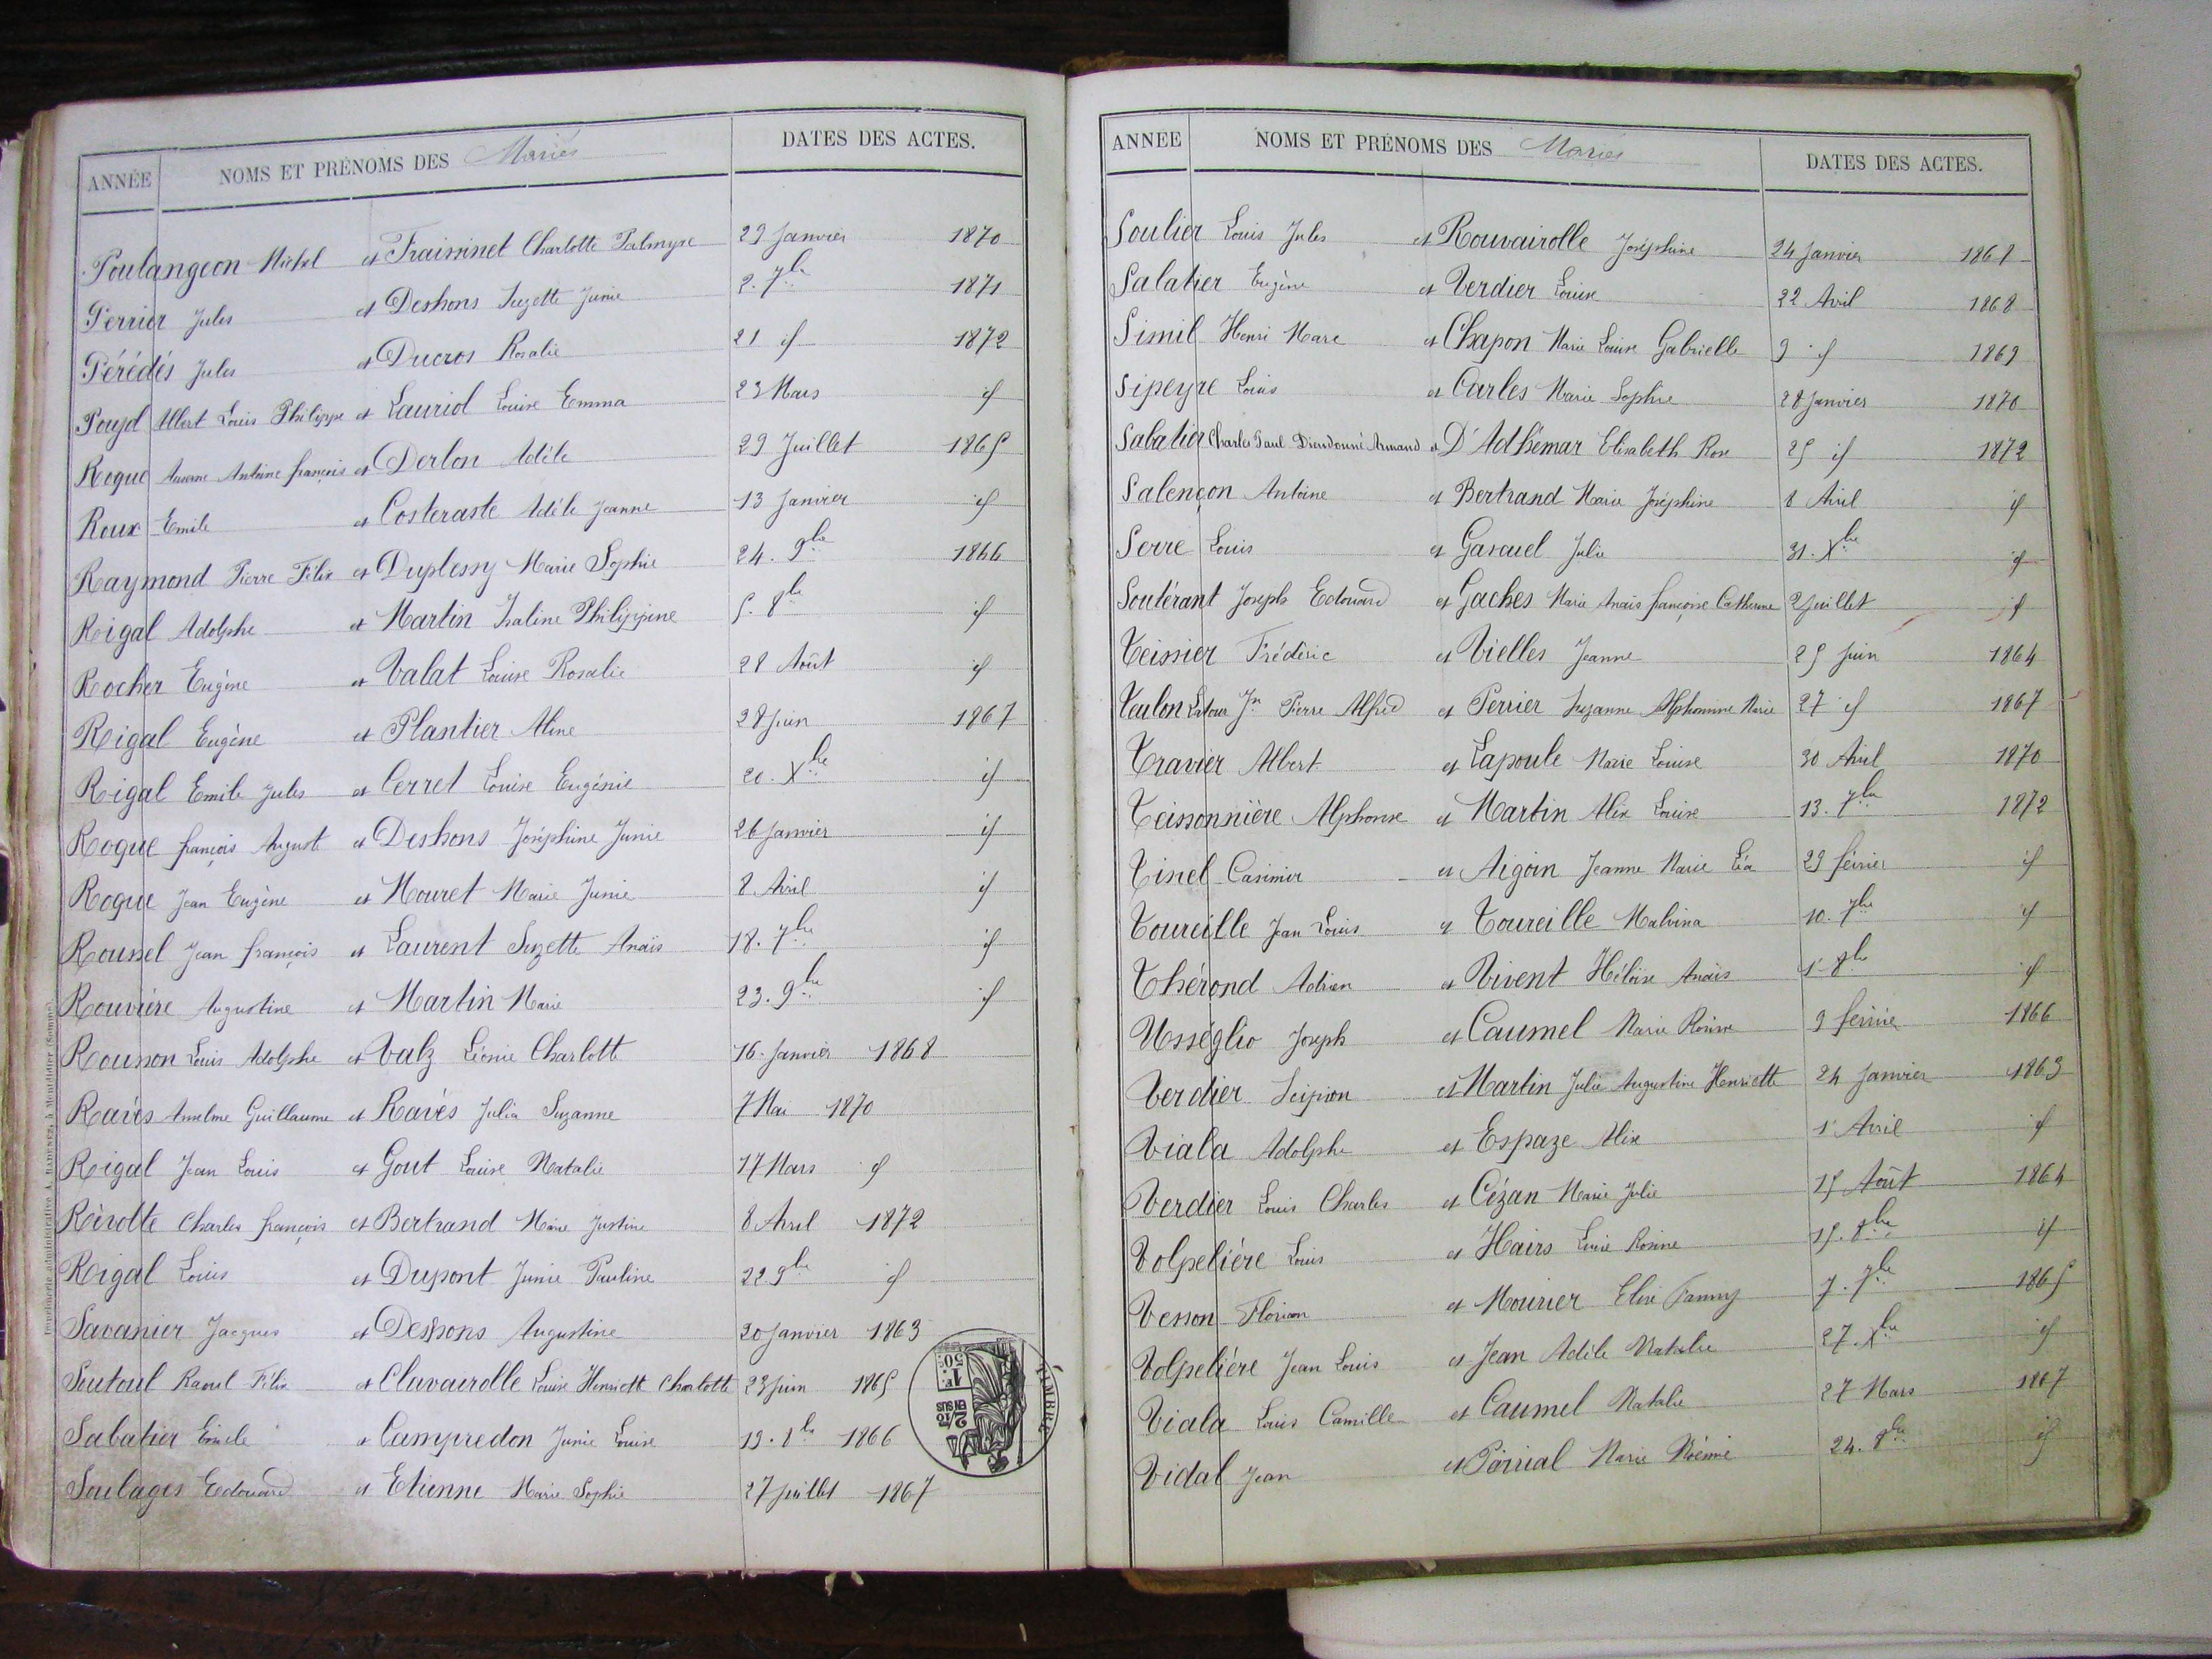 ANNÉE NOMS ET PRÉNOMS DES Mariés DATES DES ACTES.
Poulangeon Michel et Fraissinet Charlotte Palmyre 29 Janvier 1870
Perrier Jules et Deshons Suzette Junie 2. 7bre 1871
Pérédés Jules et Ducros Rosalie 21 id 1872
Poujol Albert Louis Philippe et Lauriol Louise Emma 23 Mars id
Roque Antoine françois et Derlon Adèle 29 Juillet 1865
Roux Emile et Costeraste Adèle Jeanne 13 Janvier id
Raymond Pierre Félix et Duplessy Marie Sophie 24. 9bre 1866
Rigal Adolphe et Martin Isaline Philippine 5. 8bre id
Rocher Eugène et Valat Louise Rosalie 28 Août id
Rigal Eugène et Plantier Aline 28 juin 1867
Rigal Emile Jules et Cerret Louise Eugénie 20. Xbre id
Roque françois Auguste et Deshons Joséphine Junie 26 Janvier id
Roque Jean Eugène et Mouret Marie Junie 8 Avril id
Roussel Jean françois et Laurent Suzette Anaïs 18. 7bre id
Rouvière Augustine et Martin Marie 23. 9bre id
Rousson Louis Adolphe et Valz Léonie Charlotte 16 Janvier 1868
Ravès Anselme Guillaume et Ravès Julia Suzanne 7 Mai 1870
Rigal Jean Louis et Gout Louise Natalie 17 Mars id
Rèvolte Charles françois et Bertrand Marie Justine 8 Avril 1872
Rigal Louis et Dupont Junie Pauline 22 9bre id
Savanier Jacques et Deshons Augustine 20 Janvier 1863
Soutoul Raoul Félix et Clavairolle Louise Henriette Charlotte 23 juin 1865
Sabatier Emile et Campredon Junie Louise 19. 8bre 1866
Soulages Edouard et Etienne Marie Sophie 27 juillet 1867
TIMBRE
1F. 50c.
2/10 EN SUS
Imprimerie administrative A. RADENEZ, à Montdidier (Somme)
ANNÉE NOMS ET PRÉNOMS DES Mariés DATES DES ACTES.
Soulier Louis Jules et Rouvairolle Joséphine 24 Janvier 1868
Salatier Eugène et Verdier Louise 22 Avril 1868
Simil Henri Marc et Chapon Marie Louise Gabrielle 9 id 1869
Sipeyre Louis et Carles Marie Sophie 28 Janvier 1870
Sabatier Charles Paul Dieudonné Armand et D'Adhémar Elisabeth Rose 25 id 1872
Salençon Antoine et Bertrand Marie Joséphine 8 Avril id
Serre Louis et Gascuel Julie 31. Xbre id
Soulérant Joseph Edouard et Gaches Marie Anaïs françoise Catherine 2 Juillet id
Teissier Frédéric et Vielles Jeanne 25 Juin 1864
Teulon Latour Jn Pierre Alfred et Perrier Suzanne Alphonsine Marie 27 id 1867
Travier Albert et Lapoule Marie Louise 30 Avril 1870
Teissonnière Alphonse et Martin Alix Louise 13. 7bre 1872
Tinel Casimir et Aigoin Jeanne Marie Léa 29 février id
Toureille Jean Louis et Toureille Malvina 10. 7bre id
Thérond Adrien et Vivent Héloïse Anaïs 1er 8bre id
Usséglio Joseph et Caumel Marie Rosine 9 février 1866
Verdier Scipion et Martin Julie Augustine Henriette 24 Janvier 1863
Viala Adolphe et Espaze Alix 1er Avril id
Verdier Louis Charles et Cézan Marie Julie 15 Août 1864
Volpelière Louis et Hairs Louise Rosine 15. 8bre id
Vesson Florian et Mourier Elise Fanny 7. 7bre 1865
Volpelière Jean Louis et Jean Adèle Natalie 27. Xbre id
Viala Louis Camille et Caumel Natalie 27 Mars 1867
Vidal Jean et Marie Noémie 24. 8bre id